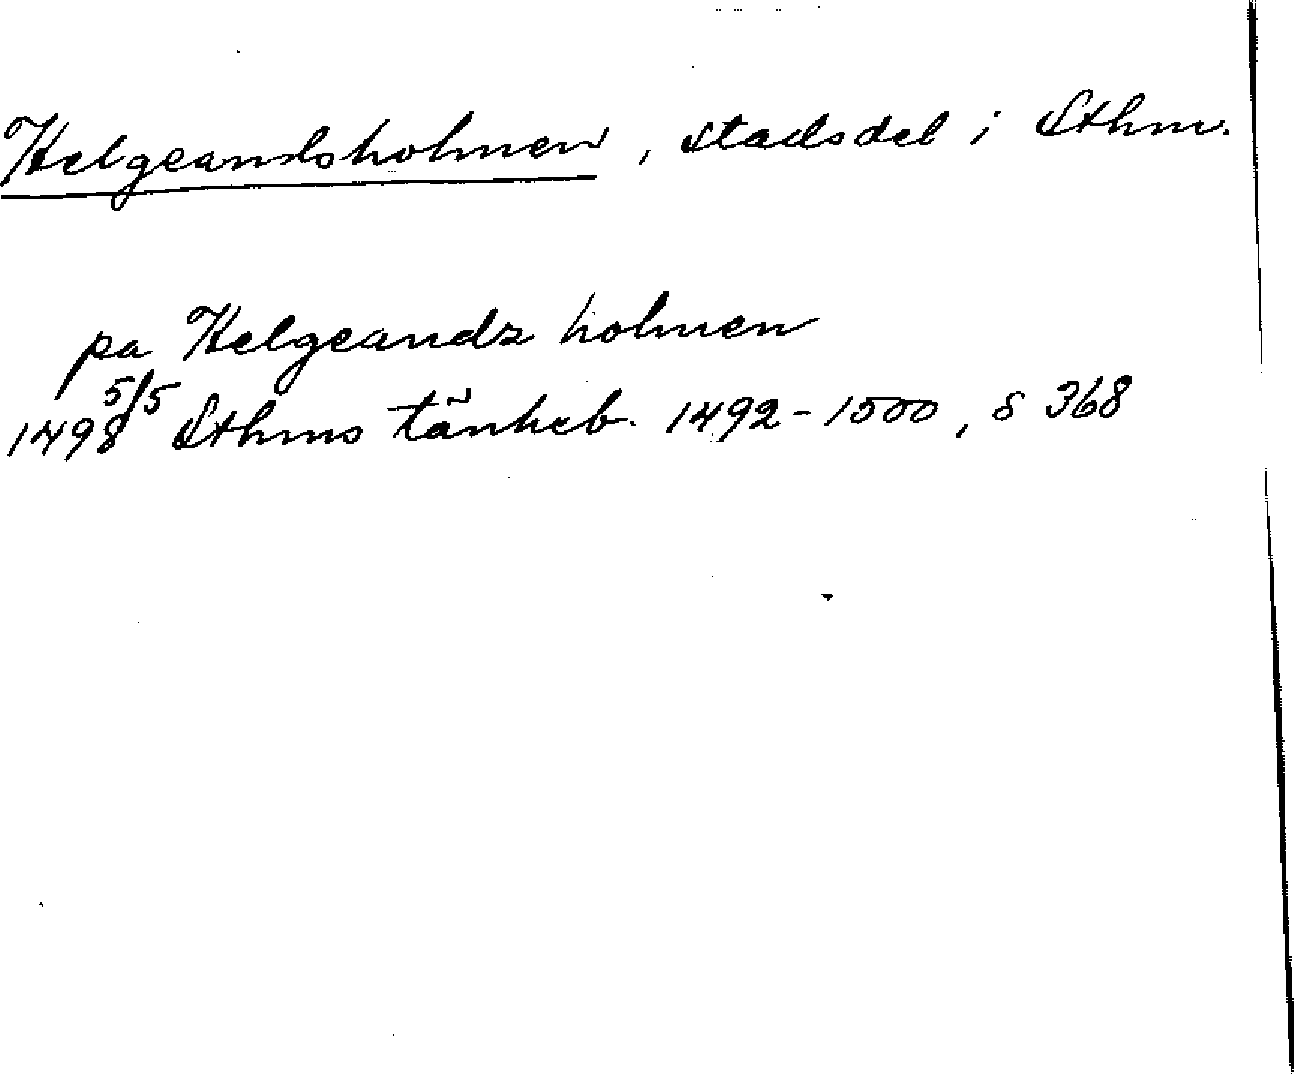 Helgeandsholmen, stadsdel i Sthm.
pa Helgeandz holmen
1498 5/5 Sthms tänkeb. 1492-1500, s 368